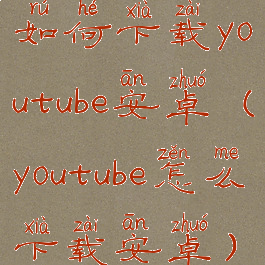 rú hé xià zài
如何下载yo
ān zhuó
utube安卓（
zěn me
youtube怎么
xià zài ān zhuó
下载安卓）